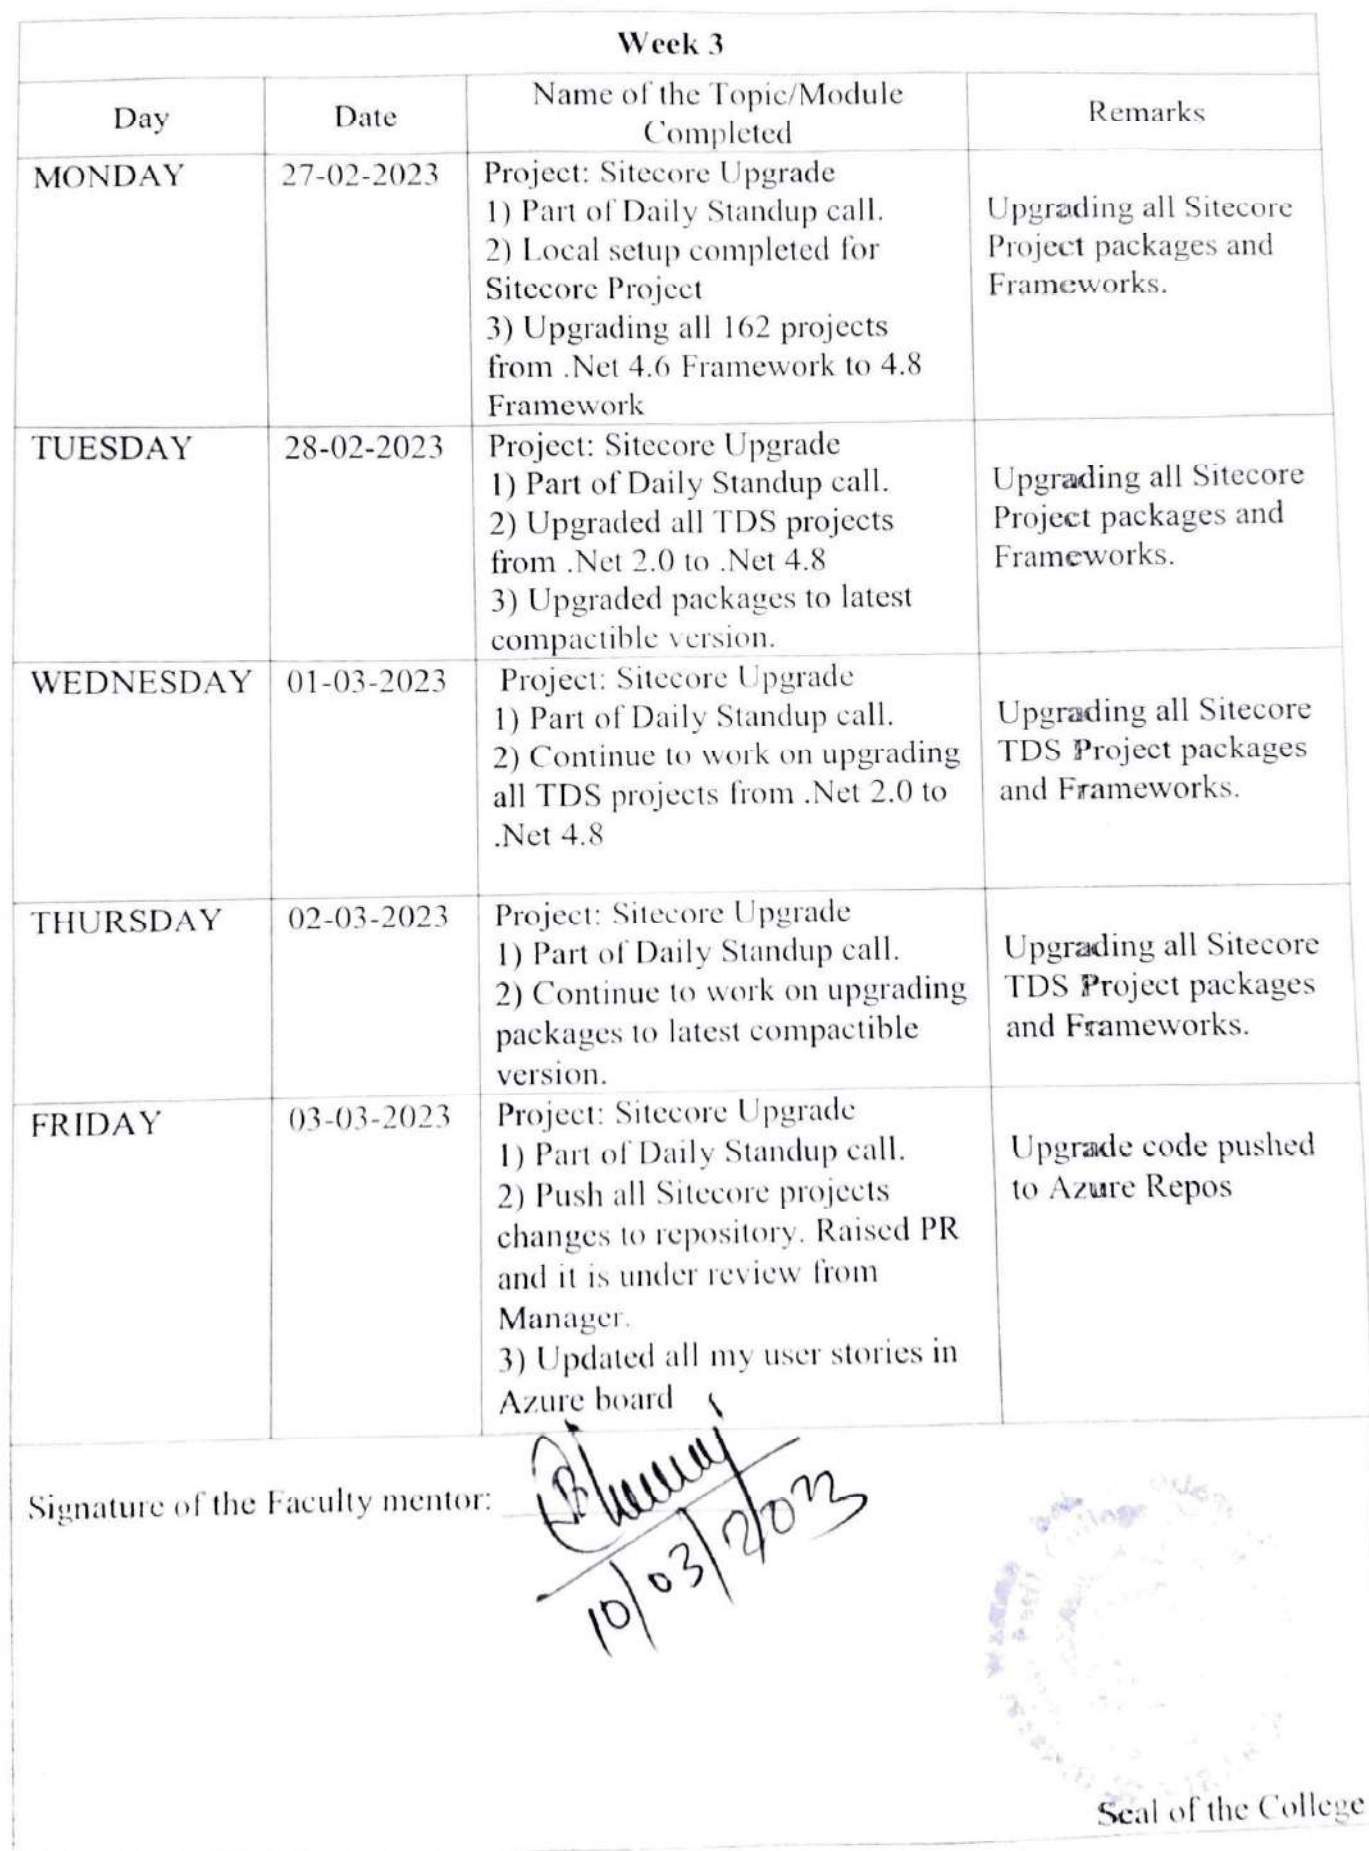 Week 3
Day
Date
Name of the Topic/Module
Completed
Remarks
MONDAY
27-02-2023
Project: Sitecore Upgrade
1) Part of Daily Standup call.
2) Local setup completed for
Sitecore Project
3) Upgrading all 162 projects
from .Net 4.6 Framework to 4.8
Framework
Upgrading all Sitecore
Project packages and
Frameworks.
TUESDAY
28-02-2023
Project: Sitecore Upgrade
1) Part of Daily Standup call.
2) Upgraded all TDS projects
from .Net 2.0 to .Net 4.8
3) Upgraded packages to latest
compactible version.
Upgrading all Sitecore
Project packages and
Frameworks.
WEDNESDAY
01-03-2023
Project: Sitecore Upgrade
1) Part of Daily Standup call.
2) Continue to work on upgrading
all TDS projects from .Net 2.0 to
.Net 4.8
Upgrading all Sitecore
TDS Project packages
and Frameworks.
THURSDAY
02-03-2023
Project: Sitecore Upgrade
1) Part of Daily Standup call.
2) Continue to work on upgrading
packages to latest compactible
version.
Upgrading all Sitecore
TDS Project packages
and Frameworks.
FRIDAY
03-03-2023
Project: Sitecore Upgrade
1) Part of Daily Standup call.
2) Push all Sitecore projects
changes to repository. Raised PR
and it is under review from
Manager.
3) Updated all my user stories in
Azure board
Upgrade code pushed
to Azure Repos
Signature of the Faculty mentor:
10/03/2023
Seal of the College